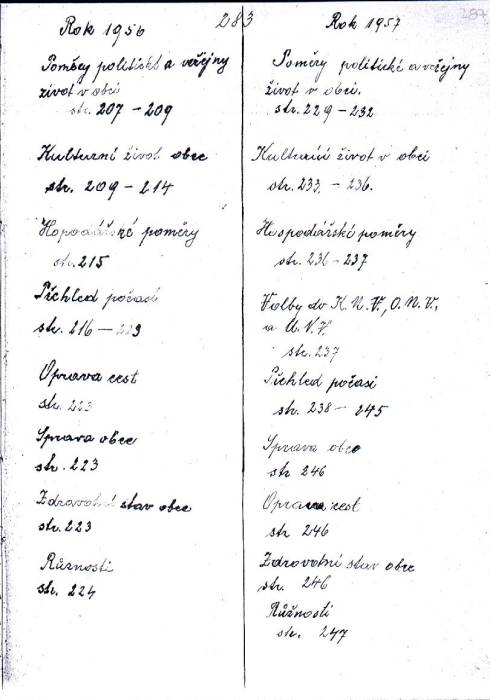 283
287
Rok 1956
Poměry politické a veřejny
život v obci
str. 207 – 209
Kulturní život obce
str. 209 – 214
Hopodářské poměry
str. 215
Přehled počasí
str. 216 – 223
Oprava cest
str. 223
Sprava obce
str. 223
Zdravotní stav obce
str. 223
Různosti
str. 224
Rok 1957
Poměry politické a veřejny
život v obci.
str. 229 – 232
Kulturní život v obci
str. 233. – 236.
Hospodářské poměry
str. 236 – 237
Volby do K.N.V., O.N.V.,
a M.N.V.
str. 237
Přehled počasi
str. 238 – 245
Sprava obce
str 246
Oprava cest
str 246
Zdravotní stav obce
str. 246
Růžnosti
str. 247